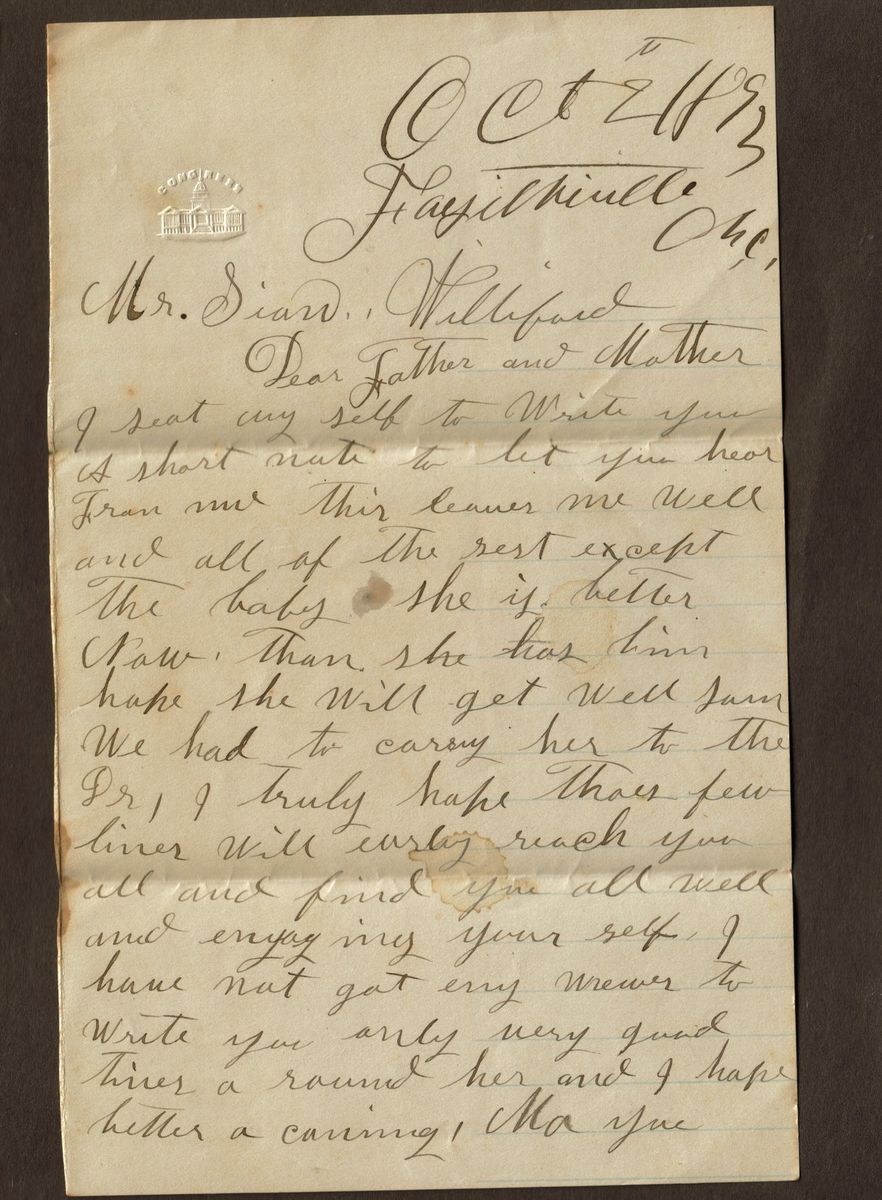 CONGRESS
Oct 2th 1893
Fayettheville
N,C,
Mr. Sion., Williford
Dear Father and Mother
I seat my self to Write you
A short note to let you hear
From me this leaves me Well
and all of the rest except
The baby she is better
Now. Than she has binn
hope she Will get Well soon
We had to carry her to the
Dr, I truly hope Thoes few
lines Will eurly reach you
all and find you all Well
and engoying your self, I
have not got eny newes to
Write you only very good
times a round her and I hope
better a coming, Ma you